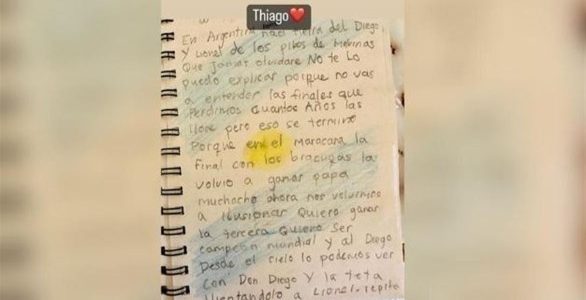 Thiago❤️
En Argentina naci tierra del Diego
y Lionel de los pibes de Malvinas
Que Jamas olvidare No te Lo
puedo explicar porque no vas
a entender las finales que
Perdimos Cuantos Años las
llore pero eso se termino
Porque en el maracana la
final con los bracugas la
volvio a ganar papa
muchacho ahora nos volvimos
a ilusionar Quiero ganar
la tercera Quiero Ser
campeon mundial y al Diego
Desde el cielo lo podemos ver
con Don Diego y la tota
alentandolo a Lionel repita